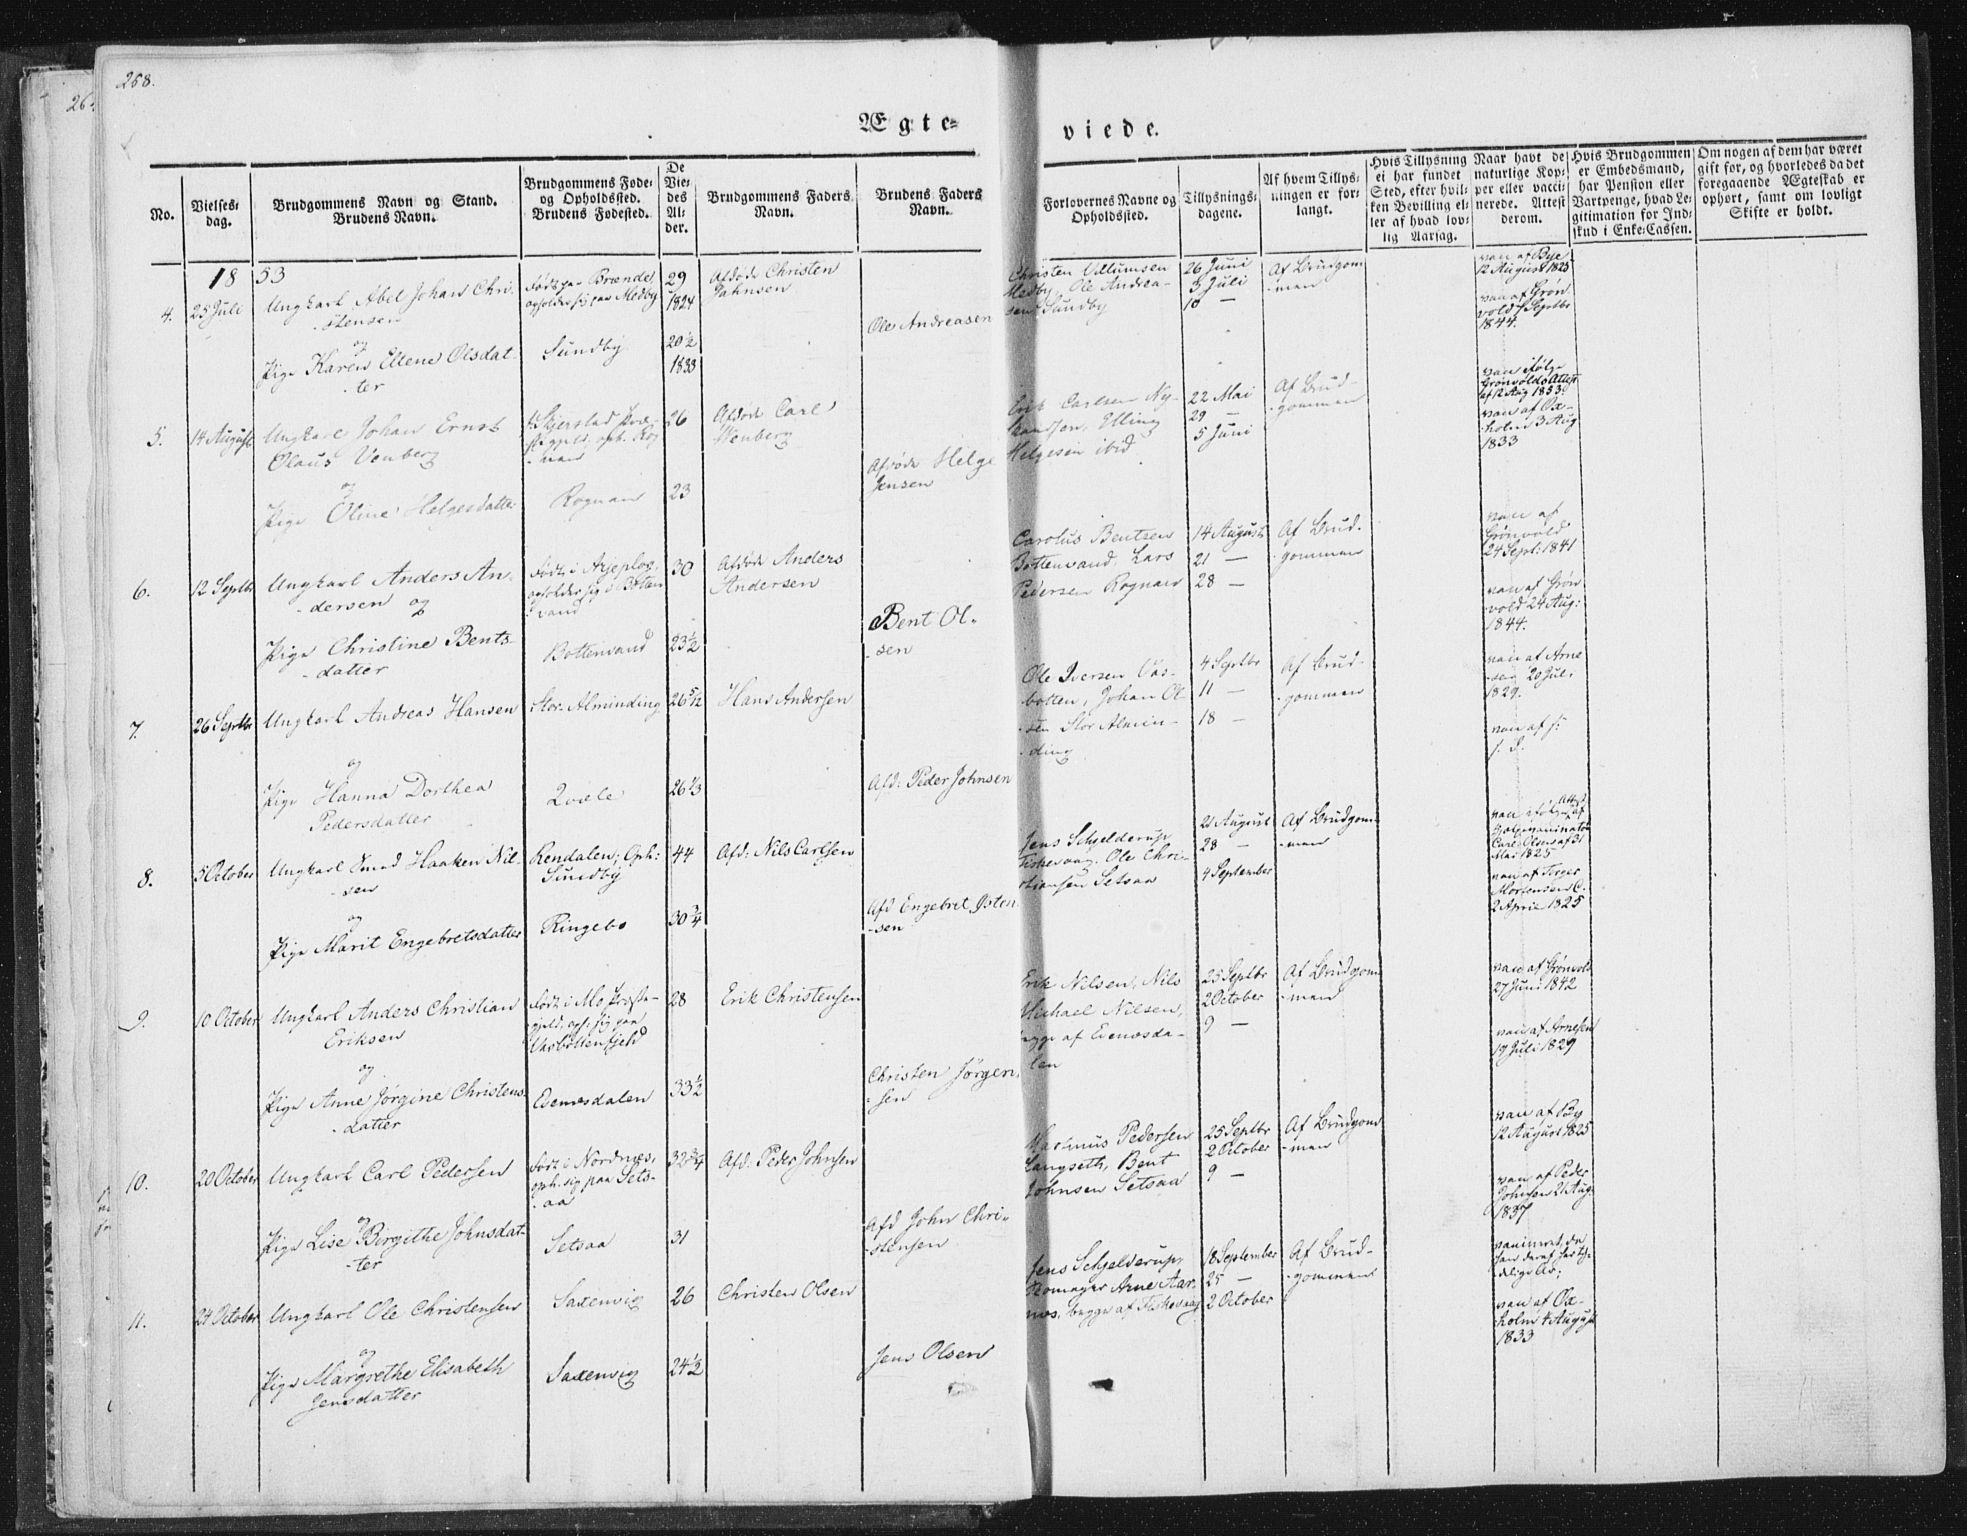 268.
26
Ægte-
viede.
No.
Vielses-
dag.
Brudgommens Navn og Stand.
Brudens Navn.
Brudgommens Føde-
og Opholdssted.
Brudens Fødested.
De
Vie-
des
Al-
der.
Brudgommens Faders
Navn.
Brudens Faders
Navn.
Forlovernes Navne og
Opholdssted.
Tillysnings-
dagene.
Af hvem Tillys-
ningen er for-
langt.
Hvis Tillysning
ei har fundet
Sted, efter hvil-
ken Bevilling el-
ler af hvad lov-
lig Aarsag.
Naar havt de
naturlige Kop-
per eller vacci-
nerede. Attest
derom.
Hvis Brudgommen
er Embedsmand,
har Pension eller
Vartpenge, hvad Le-
gitimation for Ind-
skud i Enke-Cassen.
Om nogen af dem har været
gift før, og hvorledes da det
foregaaende Ægteskab er
ophørt, samt om lovligt
Skifte er holdt.
18 53
4.
25 Juli
Ungkarl Abel Johan Chri-
-stensen
og
Pige Karen Ellene Olsdat-
-ter
Født paa Brænde,
opholder sig paa Medby
Sundby
29
1824
20½
1833
Afdøde Christen
Jahnsen
Ole Andreasen
Christen Villumsen
Medby, Ole Andrea-
sen Sundby
26 Juni
3 Juli
10 —
Af Brudgom-
-men
vac af Bye
12 August 1825
vac af Grøn
vold 7 Septbr
1844.
5.
14 August
Ungkarl Johan Ernst
Olaus Venberg
og
Pige Oline Helgesdatter
f. Skjerstad Præ-
stegjeld, oph. Rog
-nan
Rognan
26
23
Afdøde Carl
Wenberg
Afdøde Helge
Jensen
Erik Carlsen Ny-
Elling
Helgesen ibid
22 Mai
29 —
5 Juni
Af Brud-
-gommen
vac ifølge
Grønvolds Attest
af 12 Aug 1853.
vac af Ox-
holm 3 Aug
1833
6.
12 Septbr
Ungkarl Anders An-
-dersen og
Pige Christine Bents-
-datter
Født i Arjeplog,
opholder sig i Botten
vand
Bottenvand
30
23½
Afdøde Anders
Andersen
Bent Ol-
-sen
Carolus Bentsen
Bottenvand, Lars
Pedersen Rognan
14 August
21 —
28 —
Af Brud-
gommen
vac af
Grønvold
24 Sept: 1841
vac af Grøn
vold 24 Aug:
1844.
7.
26 Septbr
Ungkarl Andreas Hansen
og
Pige Hanna Dorthea
Pedersdatter
Stor. Alminding
Qvæle
26 5/12
26 1/3
Hans Andersen
Afd: Peder Johnsen
Ole Iversen Vas-
botten, Johan Ol-
-sen Stor Almin-
-ding
4 Septbr
11 —
18 —
Af Brud-
-gommen
vac af Arne
sen 20 Juli
1829.
vac af s:
s. D.
8.
5 October
Ungkarl Smed Haaken Nil-
-sen
og
Pige Marit Engebretsdatter
Rendalen; Oph:
Sundby
Ringebo
44
30¾
Afd: Nils Carlsen
Afd Engebret Østen
-sen
Jens Schjelderup
Fiskevaag. Ole Chri-
stiansen Setsaa
21 August
28 —
4 September
Af Brudgom-
-men
vac ifølge Attest af
Carl Olsen af 31
Mai 1825
vac af Torger
Mortensen C.
2 April 1825
9.
10 October
Ungkarl Anders Christian
Eriksen
og
Pige Anne Jørgine Christens-
-datter
Født i Mo Præste-
gjeld, oph: sig paa
Vasbottenfjeld
Evenesdalen
28
33½
Erik Christensen
Christen Jørgen-
-sen
Erik Nilsen, Nils
Michael Nilsen,
begge af Evenesda-
len
25 Septbr
2 October
9 —
Af Brudgom
-men
vac af Grønvold
27 Juni 1842
vac af Arnesen
19 Juli 1829
10.
20 October
Ungkarl Carl Pedersen
og
Pige Lise Birgithe Johnsdat-
-ter
Født i Nordnæs,
oph. sig paa Sets-
-aa
Setsaa
32¾
31
Afd: Peder Johnsen
Afd John Chri-
-stensen
Martinus Pedersen
Langseth, Bent
Johnsen Setsaa
25 Septbr
2 October
9 —
Af Brudgom
-men
vac af By
12 August 1825
vac af Peder
Johnsen 21 Aug:
1837
11.
24 October
Ungkarl Ole Christensen
og
Pige Margrethe Elisabeth
Jensdatter
Saxenvig
Saxenvig
26
24½
Christen Olsen
Jens Olsen
Jens Schjelderup,
Skomager Arne Aar-
næs, begge af Fiskevaag
18 September
25 —
2 October
Af Brud-
-gommen
vaccineret, da
han deraf har tyde-
-delige Ar;
vac af Ox-
holm 4 August
1833